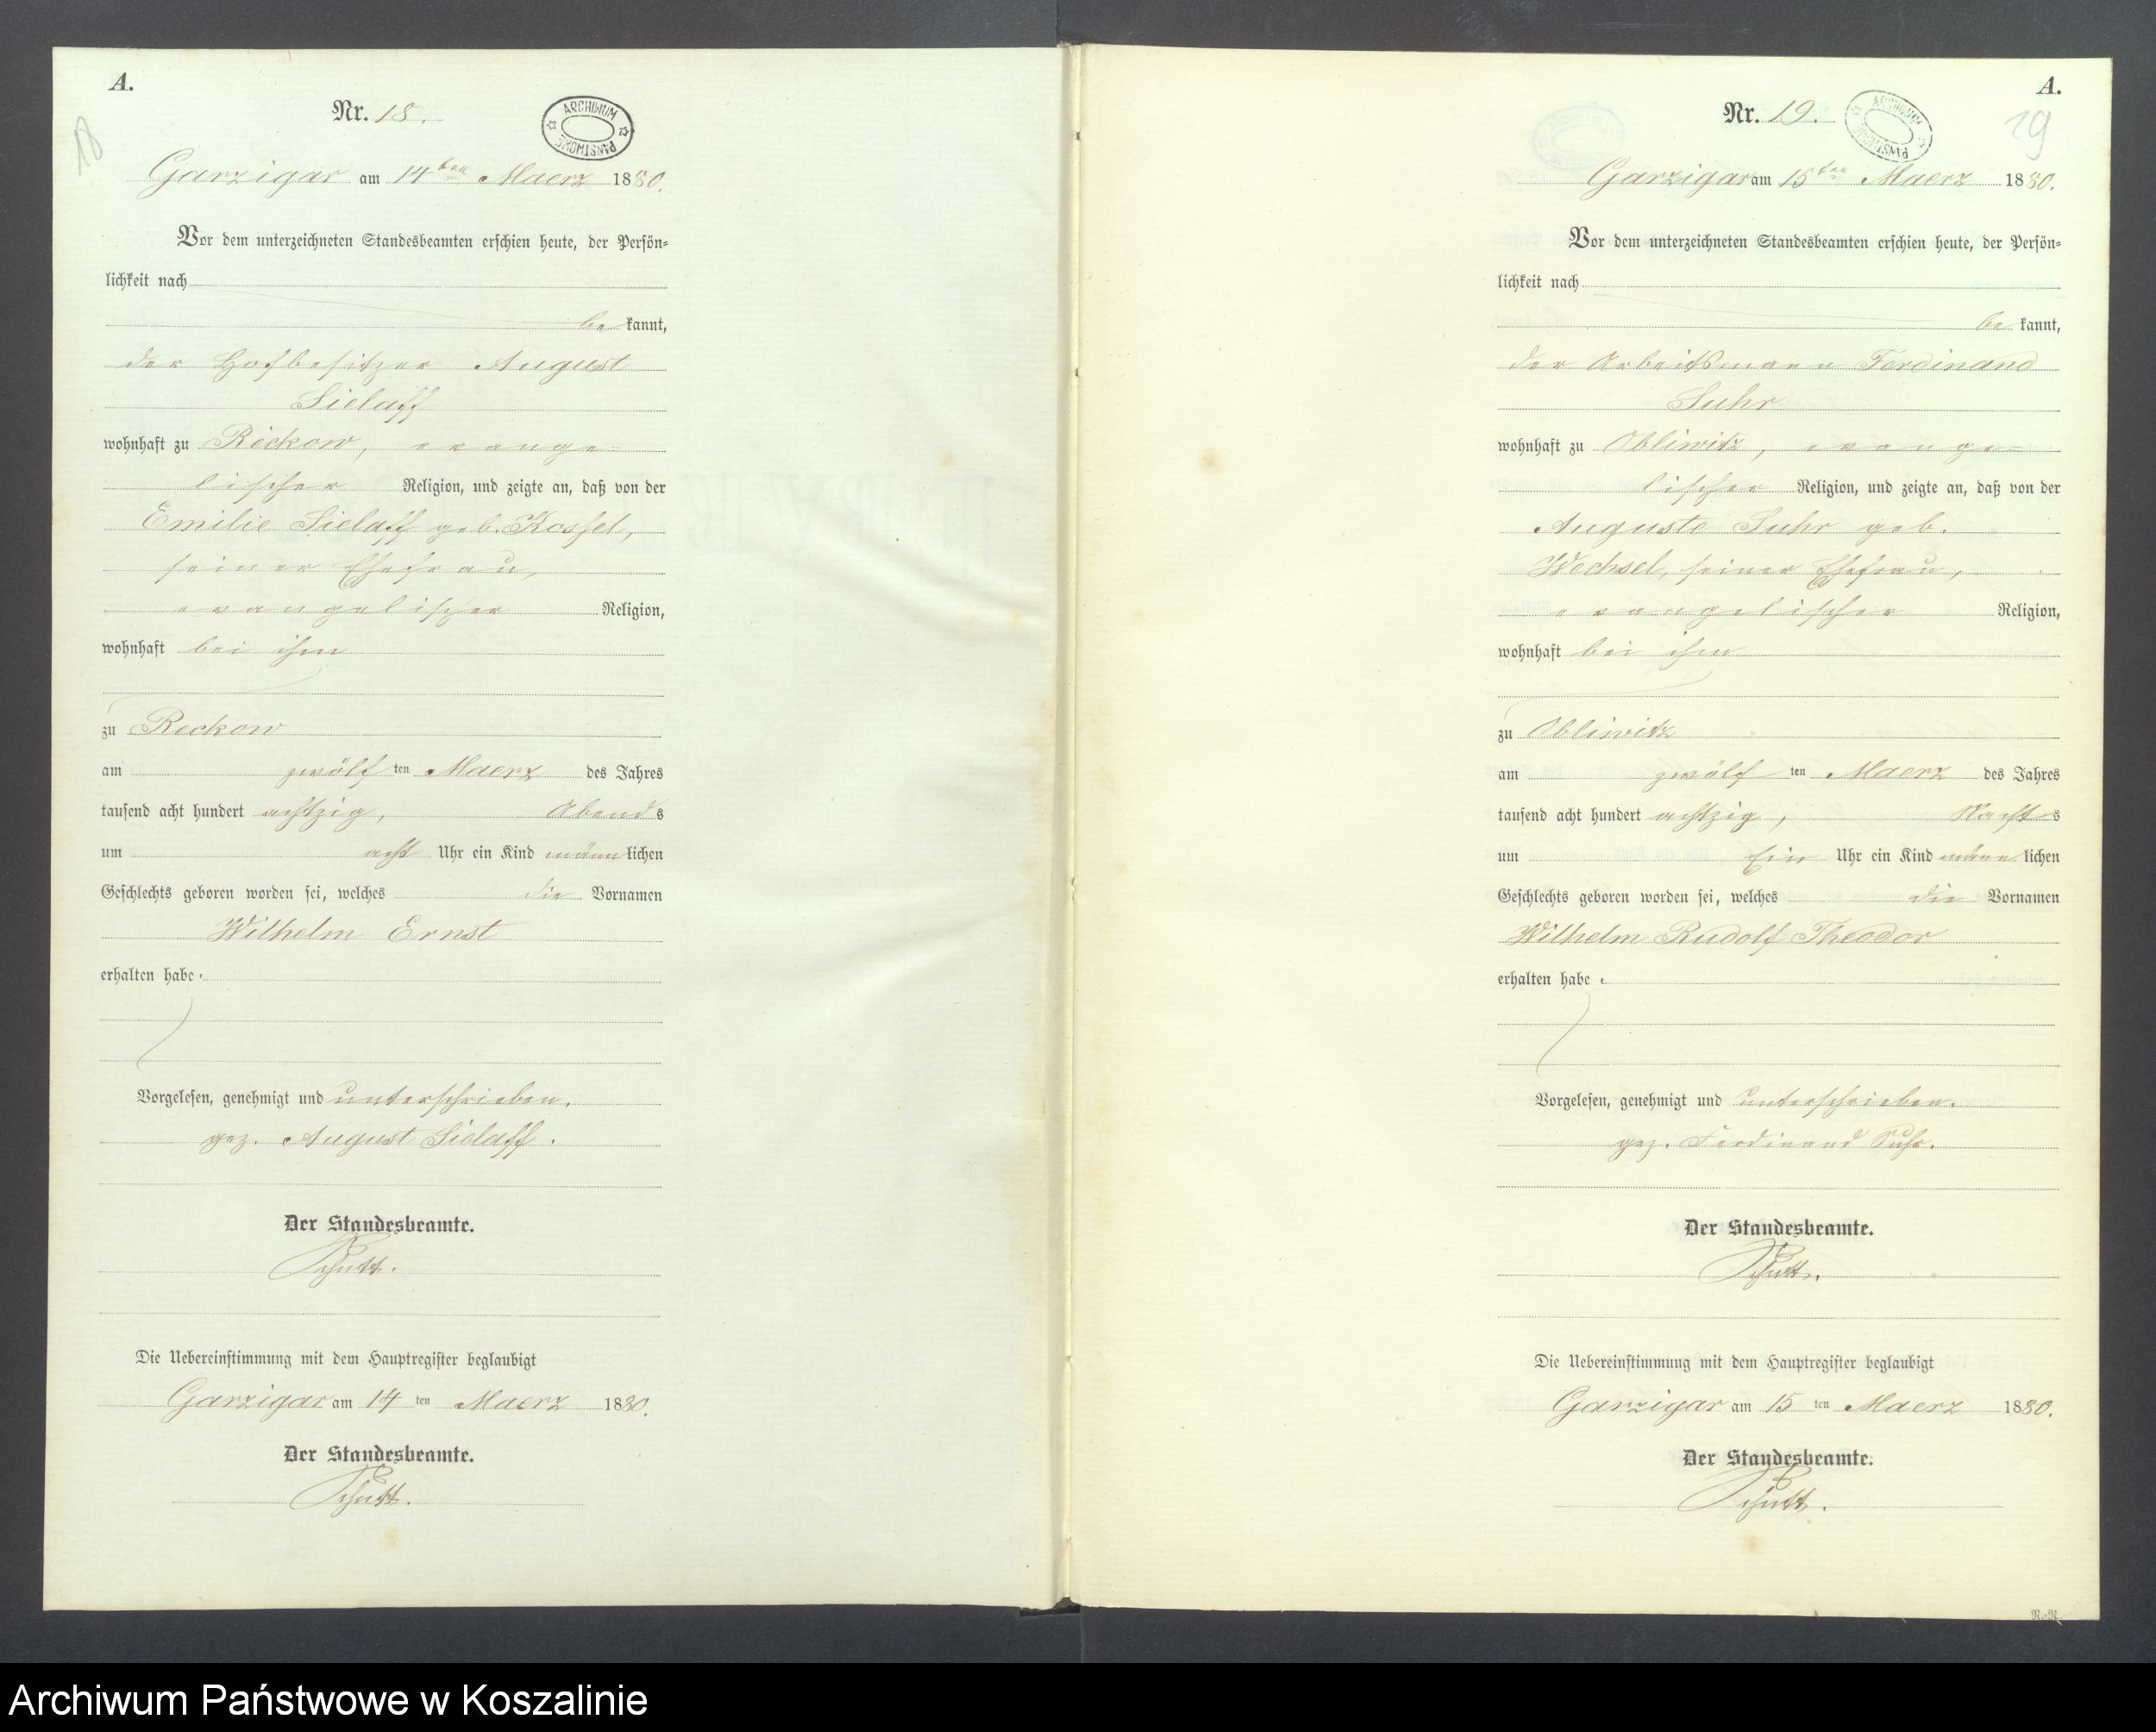 A.
Nr. 18.
ARCHIWUM PAŃSTWOWE
18
Garzigar am 14ten Maerz 1880.
Vor dem unterzeichneten Standesbeamten erschien heute, der Persön=
lichkeit nach
be kannt,
der Hofbesitzer August
Sielaff
wohnhaft zu Reckow, evange-
lischer Religion, und zeigte an, daß von der
Emilie Sielaff geb. Kossel,
seiner Ehefrau,
evangelischer Religion,
wohnhaft bei ihm
zu Reckow
am zwölf ten Maerz des Jahres
tausend acht hundert achtzig, Abends
um acht Uhr ein Kind männlichen
Geschlechts geboren worden sei, welches die Vornamen
Wilhelm Ernst
erhalten habe.
Vorgelesen, genehmigt und unterschrieben.
gez. August Sielaff.
Der Standesbeamte.
Schutt.
Die Uebereinstimmung mit dem Hauptregister beglaubigt
Garzigar am 14 ten Maerz 1880.
Der Standesbeamte.
Schutt.
A.
Nr. 19.
ARCHIWUM PAŃSTWOWE
19
Garzigar am 15ten Maerz 1880.
Vor dem unterzeichneten Standesbeamten erschien heute, der Persön=
lichkeit nach
be kannt,
der Arbeitsmann Ferdinand
Suhr
wohnhaft zu Obliwitz, evange-
lischer Religion, und zeigte an, daß von der
Auguste Suhr geb.
Wechsel, seiner Ehefrau,
evangelischer Religion,
wohnhaft bei ihm
zu Obliwitz
am zwölf ten Maerz des Jahres
tausend acht hundert achtzig, Nachts
um Ein Uhr ein Kind männlichen
Geschlechts geboren worden sei, welches die Vornamen
Wilhelm Rudolf Theodor
erhalten habe.
Vorgelesen, genehmigt und unterschrieben.
gez. Ferdinand Suhr.
Der Standesbeamte.
Schutt.
Die Uebereinstimmung mit dem Hauptregister beglaubigt
Garzigar am 15 ten Maerz 1880.
Der Standesbeamte.
Schutt.
Archiwum Państwowe w Koszalinie